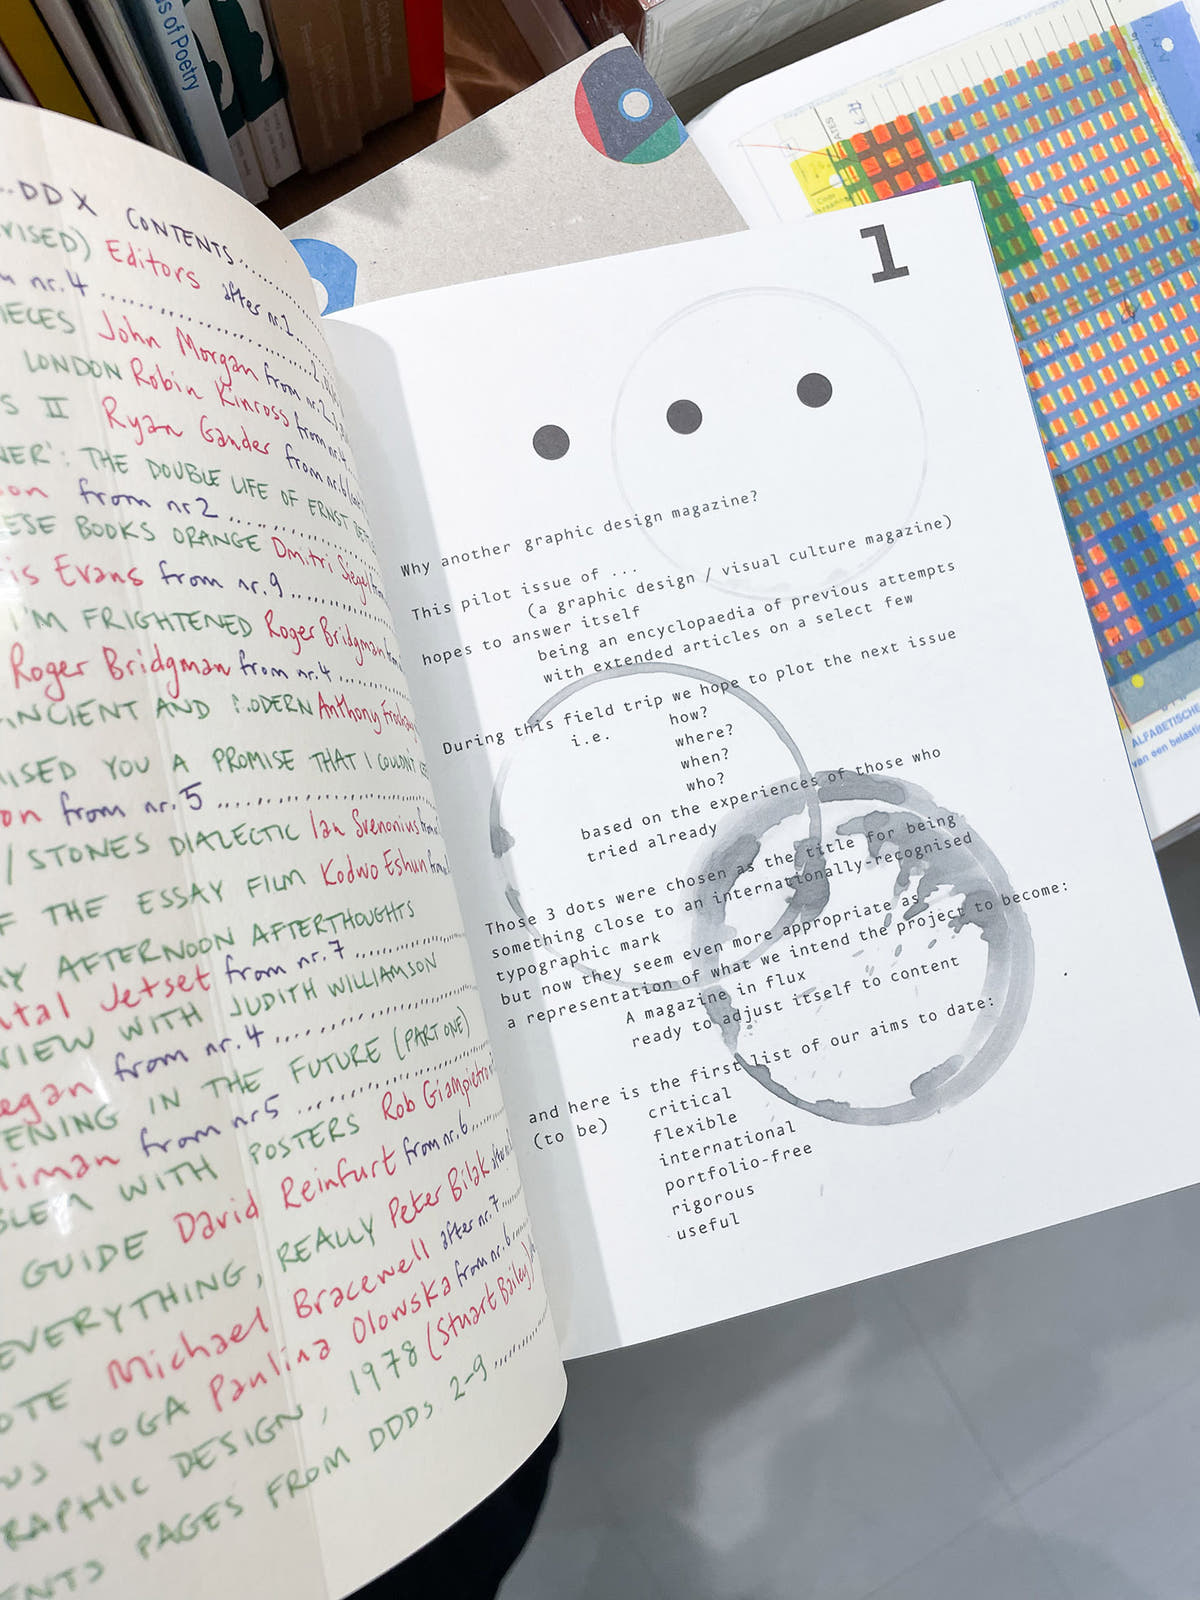 s of Poetry
..DDX CONTENTS
VISED) Editors after nr.1
nr.4
IECES John Morgan from nr.2
LONDON Robin Kinross from nr.4
S II Ryan Gander from nr.6
NER': THE DOUBLE LIFE OF ERNST
on from nr2
ESE BOOKS ORANGE Dmitri Siegel
is Evans from nr.9
I'M FRIGHTENED Roger Bridgman from
Roger Bridgman from nr.4
ANCIENT AND MODERN Anthony
ISED YOU A PROMISE THAT I
on from nr.5
/STONES DIALECTIC Ian Svenonius from
F THE ESSAY FILM Kodwo Eshun from
AY AFTERNOON AFTERTHOUGHTS
ntal Jetset from nr.7
VIEW WITH JUDITH WILLIAMSON
egan from nr.4
ENING IN THE FUTURE (PART ONE)
liman from nr5
BLEM WITH POSTERS Rob Giampietro
GUIDE David Reinfurt from nr.6
EVERYTHING, REALLY Peter Bilak after
OTE Michael Bracewell after nr.7
YOGA Paulina Olowska from nr.6
RAPHIC DESIGN, 1978 (Stuart Bailey)
ENTS PAGES FROM DDDs 2-9
1
Why another graphic design magazine?
This pilot issue of ...
(a graphic design / visual culture magazine)
hopes to answer itself
being an encyclopaedia of previous attempts
with extended articles on a select few
During this field trip we hope to plot the next issue
i.e. how?
where?
when?
who?
based on the experiences of those who
tried already
Those 3 dots were chosen as the title for being
something close to an internationally-recognised
typographic mark
but now they seem even more appropriate as
a representation of what we intend the project to become:
A magazine in flux
ready to adjust itself to content
and here is the first list of our aims to date:
(to be) critical
flexible
international
portfolio-free
rigorous
useful
ALFABETISCHE
van een belastin